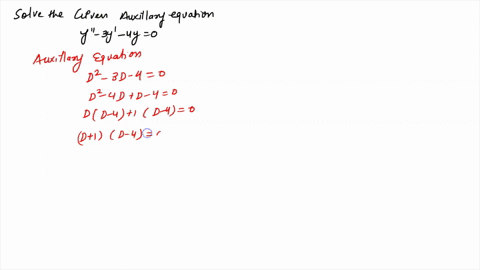 Solve the Given Auxillary equation
y''-3y'-4y=0
Auxillary Equation
D²-3D-4=0
D²-4D+D-4=0
D(D-4)+1(D-4)=0
(D+1)(D-4)=